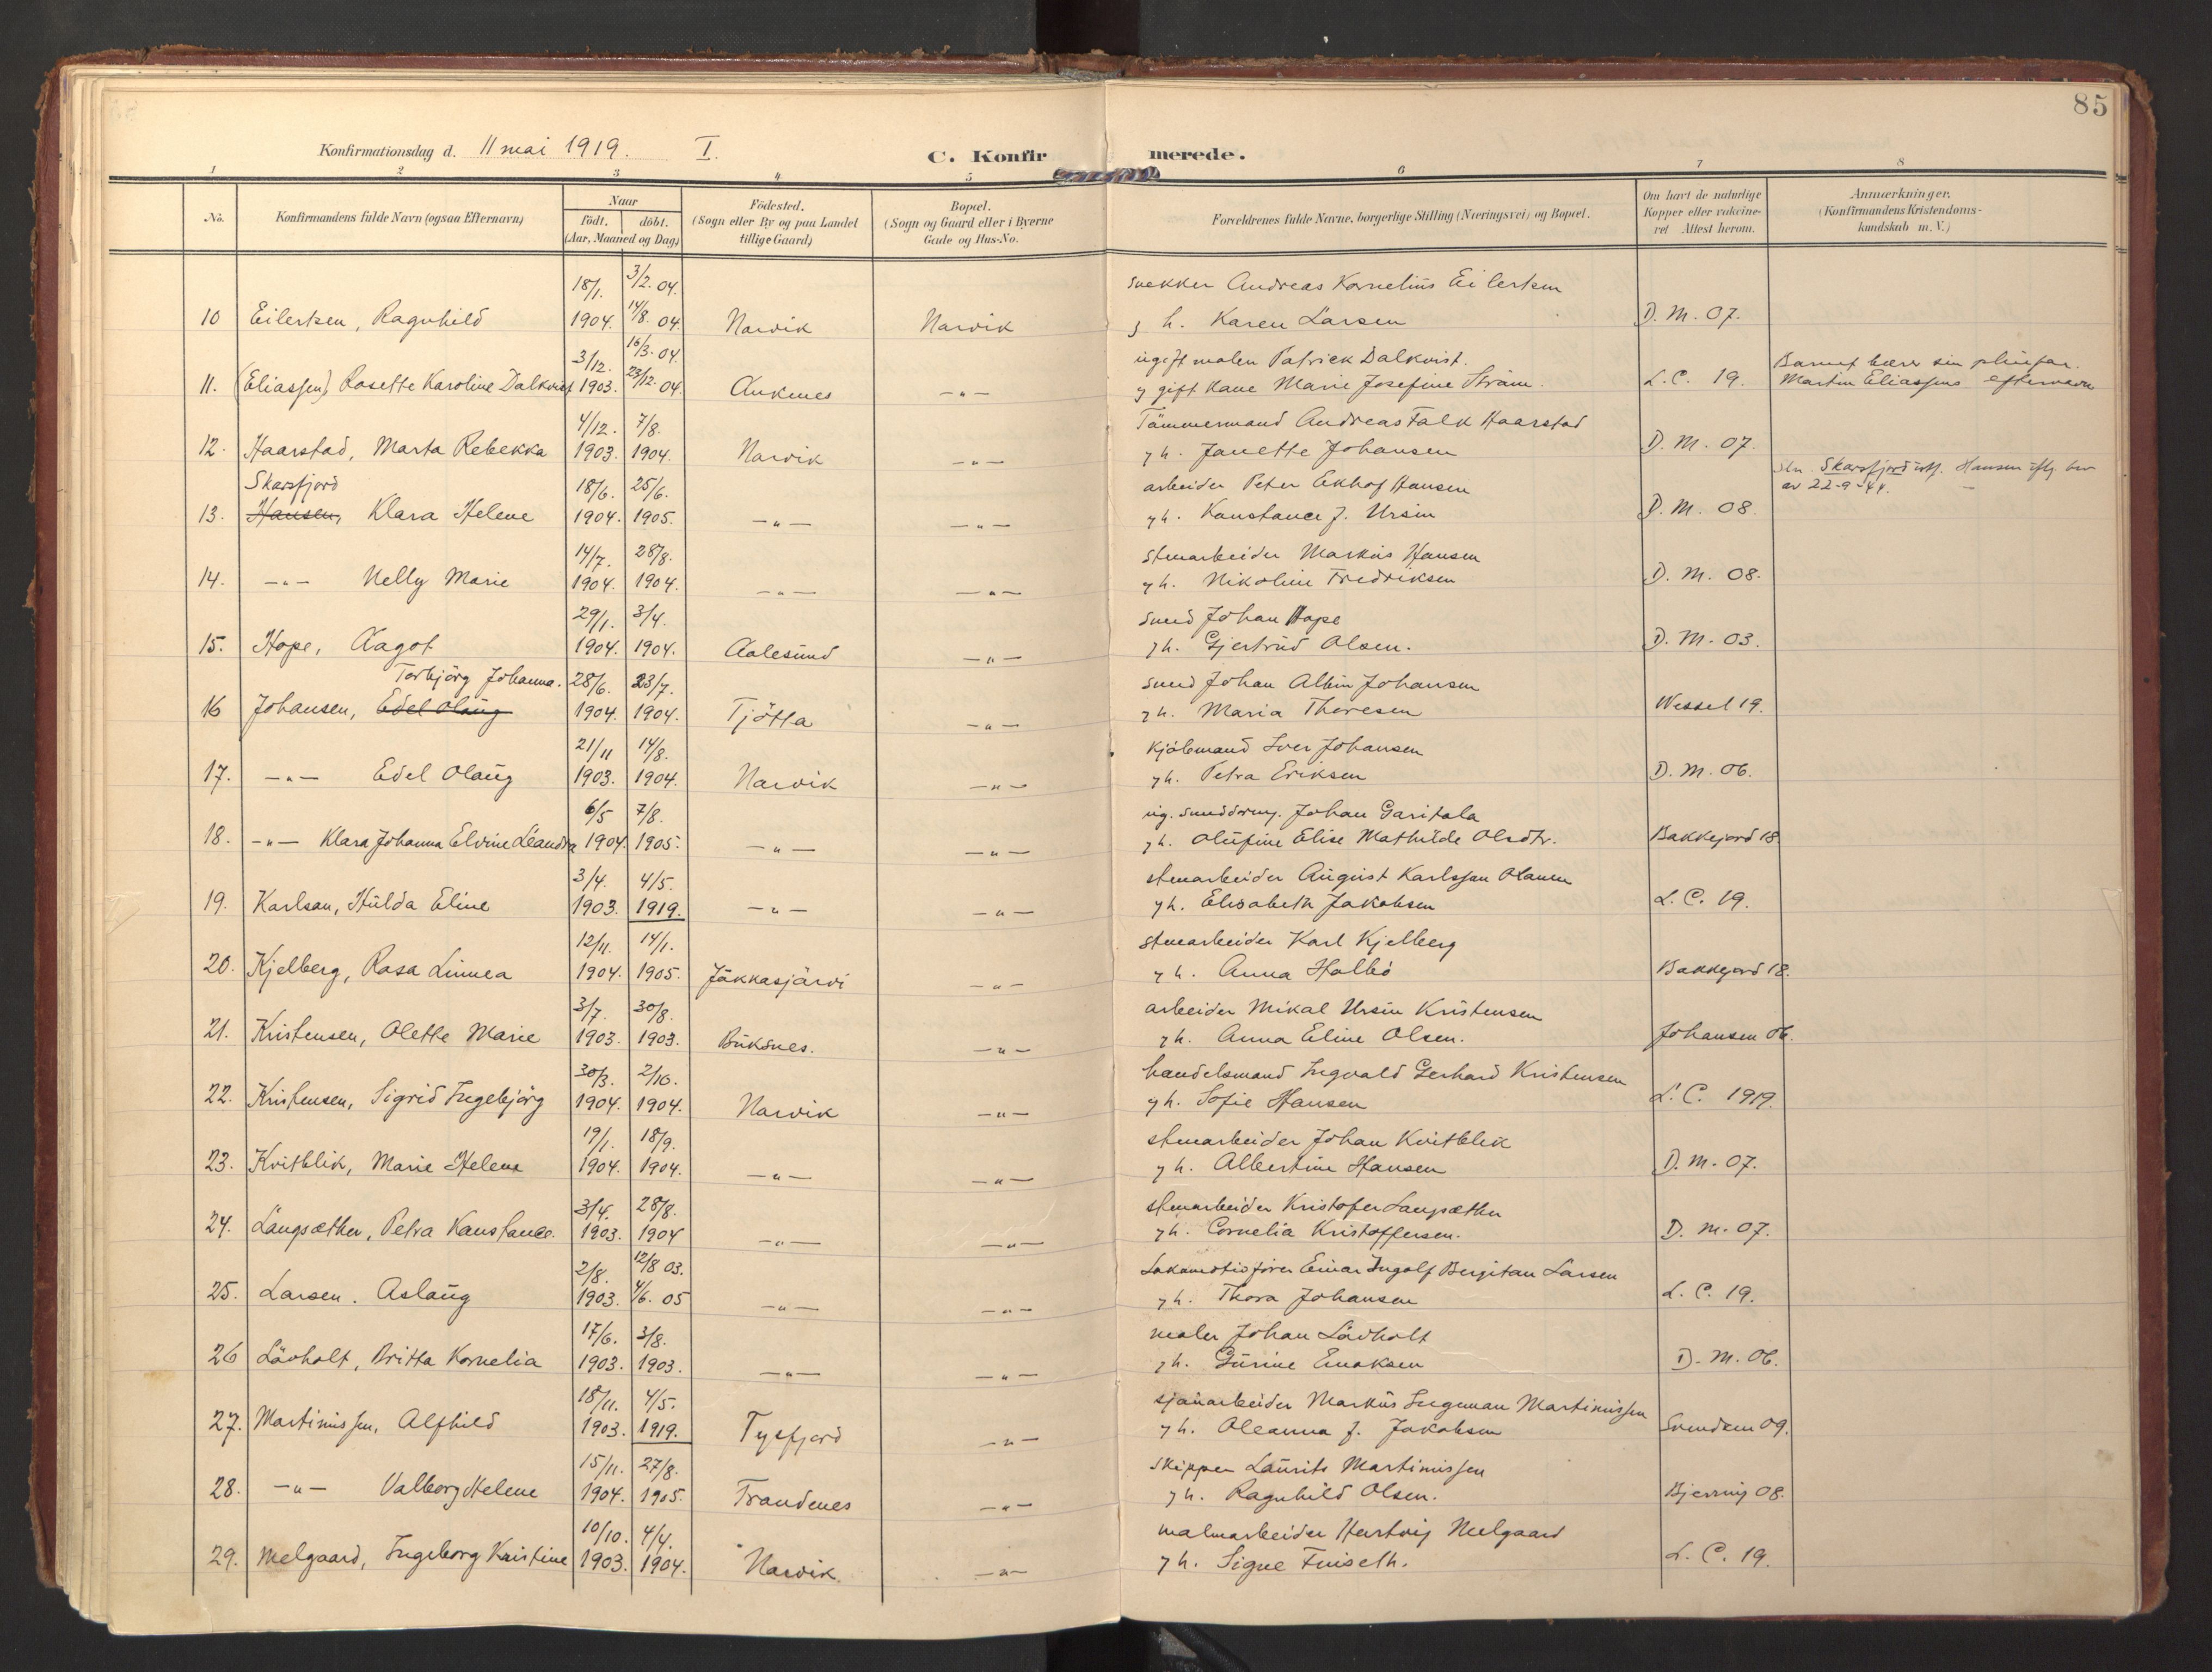 85
Konfirmationsdag d. 11 mai 1919. I.
C. Konfirmerede.
1 2 3 4 5 6 7 8
No. Konfirmandens fulde Navn (ogsaa Efternavn) Naar födt. döbt. (Aar, Maaned og Dag) Födested. (Sogn eller By og paa Landet tillige Gaard) Bopæl. (Sogn og Gaard eller i Byerne Gade og Hus-No. Forældrenes fulde Navne, borgerlige Stilling (Næringsvei) og Bopæl. Om havt de naturlige Kopper eller vakcineret Attest herom. Anmærkninger. (Konfirmandens Kristendomskundskab m. V.)
18/1. 3/2. 04. snekker Andreas Kornelius Eilertsen
10 Eilertsen, Ragnhild 1904. 14/8. 04. Narvik Narvik g h. Karen Larsen D. M. 07.
3/12. 16/3. 04. ugift maler Patrick Dalkvist. Barnet bærer sin pleiefar
11. (Eliassen) Rosette Karoline Dalkvist 1903. 23/12. 04. Ankenes -"- g gift kone Marie Josefine Ström. L. C. 19. Martin Eliassens efternavn
4/12. 7/8. Tömmermand Andreas Falk Haarstad
12. Haarstad, Marta Rebekka 1903. 1904. Narvik -"- g h. Janette Johansen D. M. 07.
Skarsfjord 18/6. 25/6. arbeider Peter Ekhof Hansen Skarsfjord istf. Hansen iflg bev
13. Hansen, Klara Helene 1904. 1905. -"- -"- g h. Konstance J. Ursin D. M. 08. av 22-9-44.
14/7. 28/8. stenarbeider Markus Hansen
14. -"- Nelly Marie 1904. 1904. -"- -"- g h. Nikoline Fredriksen D. M. 08.
29/1. 3/4. smed Johan Hope
15. Hope, Aagot 1904. 1904. Aalesund -"- g h. Gjertrud Olsen. D. M. 03.
Torbjörg Johanna. 28/6. 23/7. smed Johan Albin Johansen
16 Johansen, Edel Olaug 1904. 1904. Tjötta -"- g h. Maria Thoresen Wessel 19.
21/11 14/8. kjöbmand Iver Johansen
17. -"- Edel Olaug 1903. 1904. Narvik -"- g h. Petra Eriksen D. M. 06.
6/5 7/8. ug. Johan Garitala
18. -"- Klara Johanna Elvine Leandra 1904. 1905. -"- -"- g h. Olufine Elise Mathilde Olsdtr. Bakkejord 18.
3/4. 4/5. stenarbeider August Karlsson
19. Karlsan, Hulda Eline 1903. 1919. -"- -"- g h. Elisabeth Jakobsen L. C. 19.
12/11. 14/1. stenarbeider Karl Kjelberg
20. Kjelberg, Rosa Linnea 1904. 1905. Jükkasjärvi -"- g h. Anna Holbö Bakkejord 18.
3/7. 30/8. arbeider Mikal Ursin Kristensen
21. Kristensen, Olette Marie 1903. 1903. Buksnes. -"- g h. Anna Eline Olsen. Johansen 06.
30/3. 2/10. handelsmand Ingvald Gerhard Kristensen
22. Kristensen, Sigrid Ingebjörg 1904. 1904. Narvik -"- g h. Sofie Hansen L. C. 1919.
19/1. 18/9. stenarbeider Johan Kvitblik
23. Kvitblik, Marie Helene 1904. 1904. -"- -"- g h. Albertine Hansen D. M. 07.
3/4. 28/8. stenarbeider Kristofer Langsæther
24. Langsæther, Petra Konstance. 1903. 1904 -"- -"- g h. Cornelia Kristoffersen. D. M. 07.
2/8. 12/8 03. Lokomotivförer Einar Ingolf Bergitan Larsen
25. Larsen. Aslaug 1903. 4/6. 05 -"- -"- g h. Thora Johansen L. C. 19.
17/6. 3/8. maler Johan Lövholt
26 Lövholt, Britta Kornelia 1903. 1903. -"- -"- g h. Gurine Enoksen D. M. 06.
18/11. 4/5. sjauarbeider Markus Ingeman Martinussen
27. Martinussen, Alfhild 1903. 1919. Tysfjord -"- g h. Oleanna J. Jakobsen Svendsen 09.
15/11. 27/8. skipper Laurits Martinussen
28. -"- Valborg Helene 1904. 1905. Trondenes -"- g h. Ragnhild Olsen. Bjerring 08.
10/10. 4/4. malmarbeider Hartvig Melgaard
29. Melgaard, Ingeborg Kristine 1903. 1904. Narvik. -"- g h. Signe Finseth. L. C. 19.